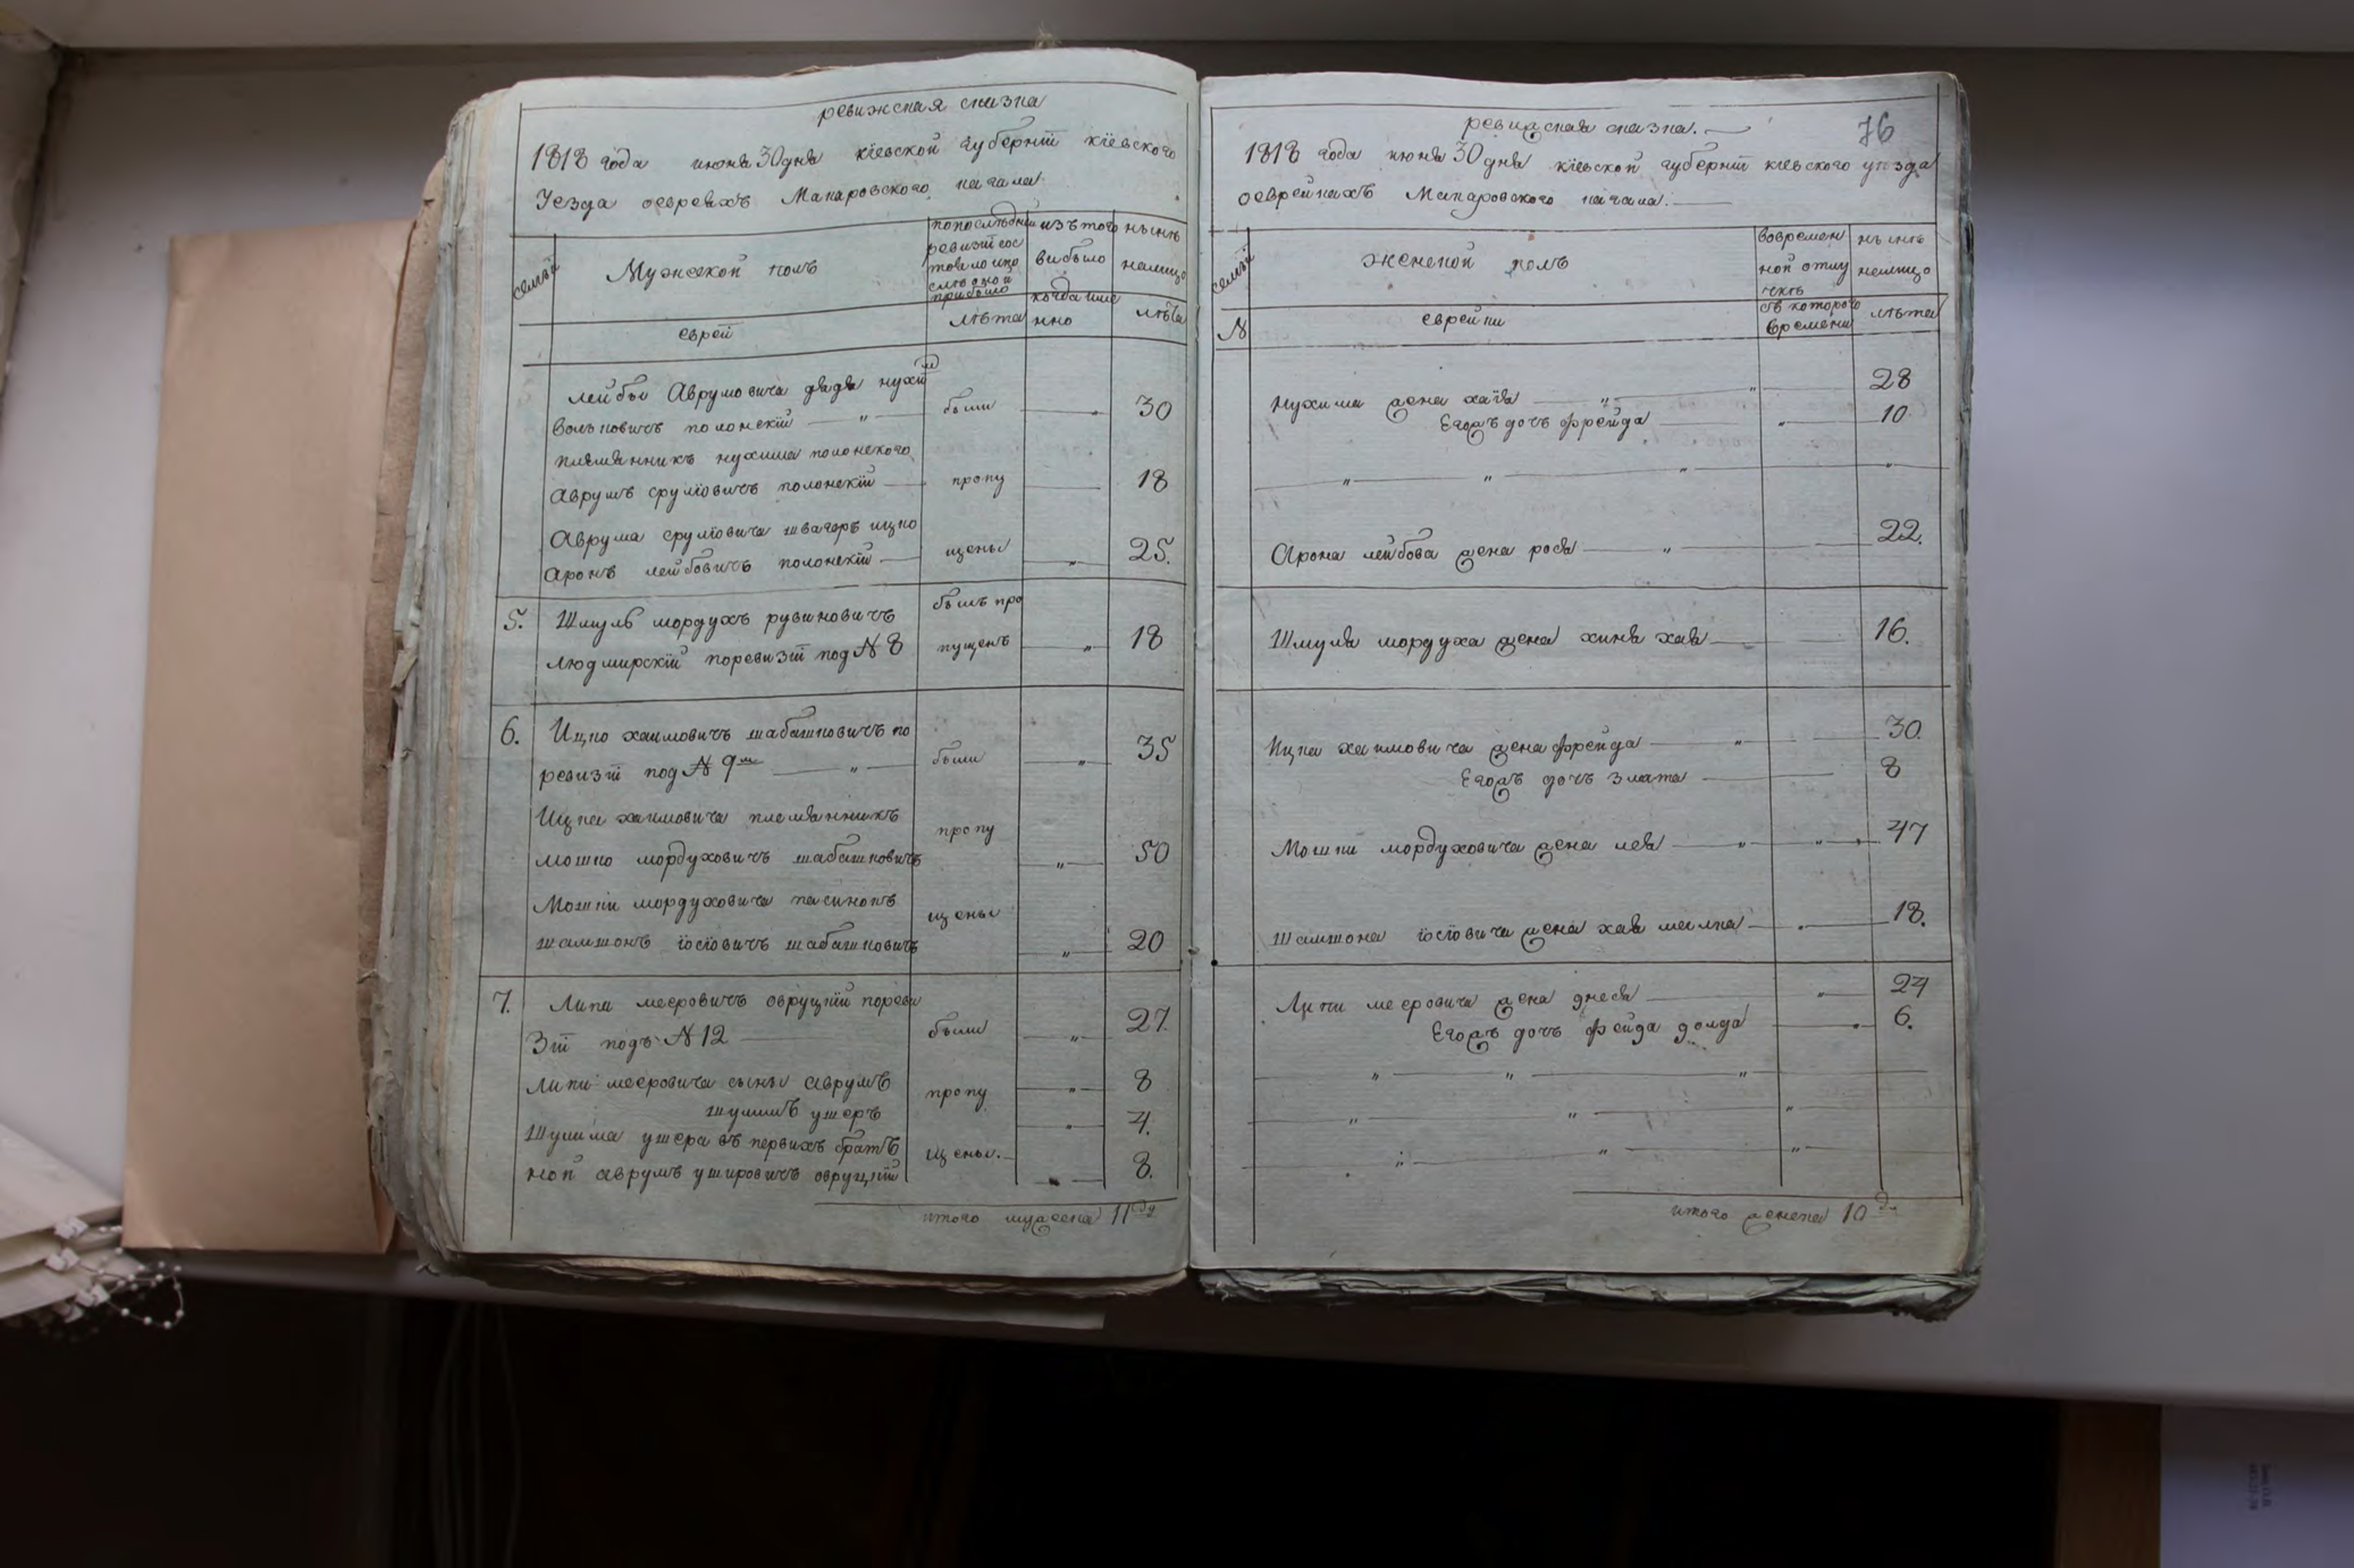 ревижская сказка
1818 года июня 30 дня кіевской губерніи кіевского
Уезда оевреяхъ Макаровского кагала
семьи
Мужеской полъ
попоследней ревизіи сос тояло ипо слѣ оной прибыло
изътого выбыло
нынѣ налицо
еврей
лѣта
когда име нно
лѣта
лейбы Аврумовича дядя нухи м
Вольковичъ полонскій — " — были — " — 30
племянникъ нухима полонского
аврумъ сруліовичъ полонскій — пропу — 18
Аврума сруліовича швагеръ ицко
аронъ лейбовичъ полонскій — щены — " — 25.
5. Шмуль мордухъ рувиновичъ былъ про
людмирскій поревизіи под N 8 пущенъ — " — 18
6. Ицко хаимовичъ шабашковичъ по
ревизіи под N 9м — " — были — " — 35
Ицка хаимовича племянникъ пропу
мошко мордуховичъ шабашковичъ — " — 50
Мошки мордуховича пасинокъ щены
шамшонъ іосіовичъ шабашковичъ — " — 20
7. Липа мееровичъ овруцкій пореви
зіи подъ N 12 — были — " — 27.
Липи мееровича сыны аврумъ пропу — " — 8
шулимъ ушеръ — " — 4.
Шулима ушера въ первихъ братъ щены.
ной аврумъ ушировичъ овруцкій — 8.
итого мужеска 11
76
ревижская сказка.
1818 года июня 30 дня кіевской губерніи кіевского уезда
оеврейкахъ Макаровского кагала.
семьи
женской полъ
вовремен ной отлу чкѣ
нынѣ налицо
N
еврейки
съ которого времени
лѣта
Нухима жена хая — " — " — 28
Егожъ дочъ фрейда — " — 10
" — " — " — "
Арона лейбова жена рося — " — 22.
Шмуля мордуха жена хиня хая — 16.
Ицка хаимовича жена фрейда — " — 30.
Егожъ дочъ злата — 8
Мошки мордуховича жена лея — " — " — 47
Шамшона іосіовича жена хая малка — 18.
Липи мееровича жена днеся — " — 24
Егожъ дочъ фейда голда — 6.
" — " — "
" — " — "
" — " — "
итого женска 10